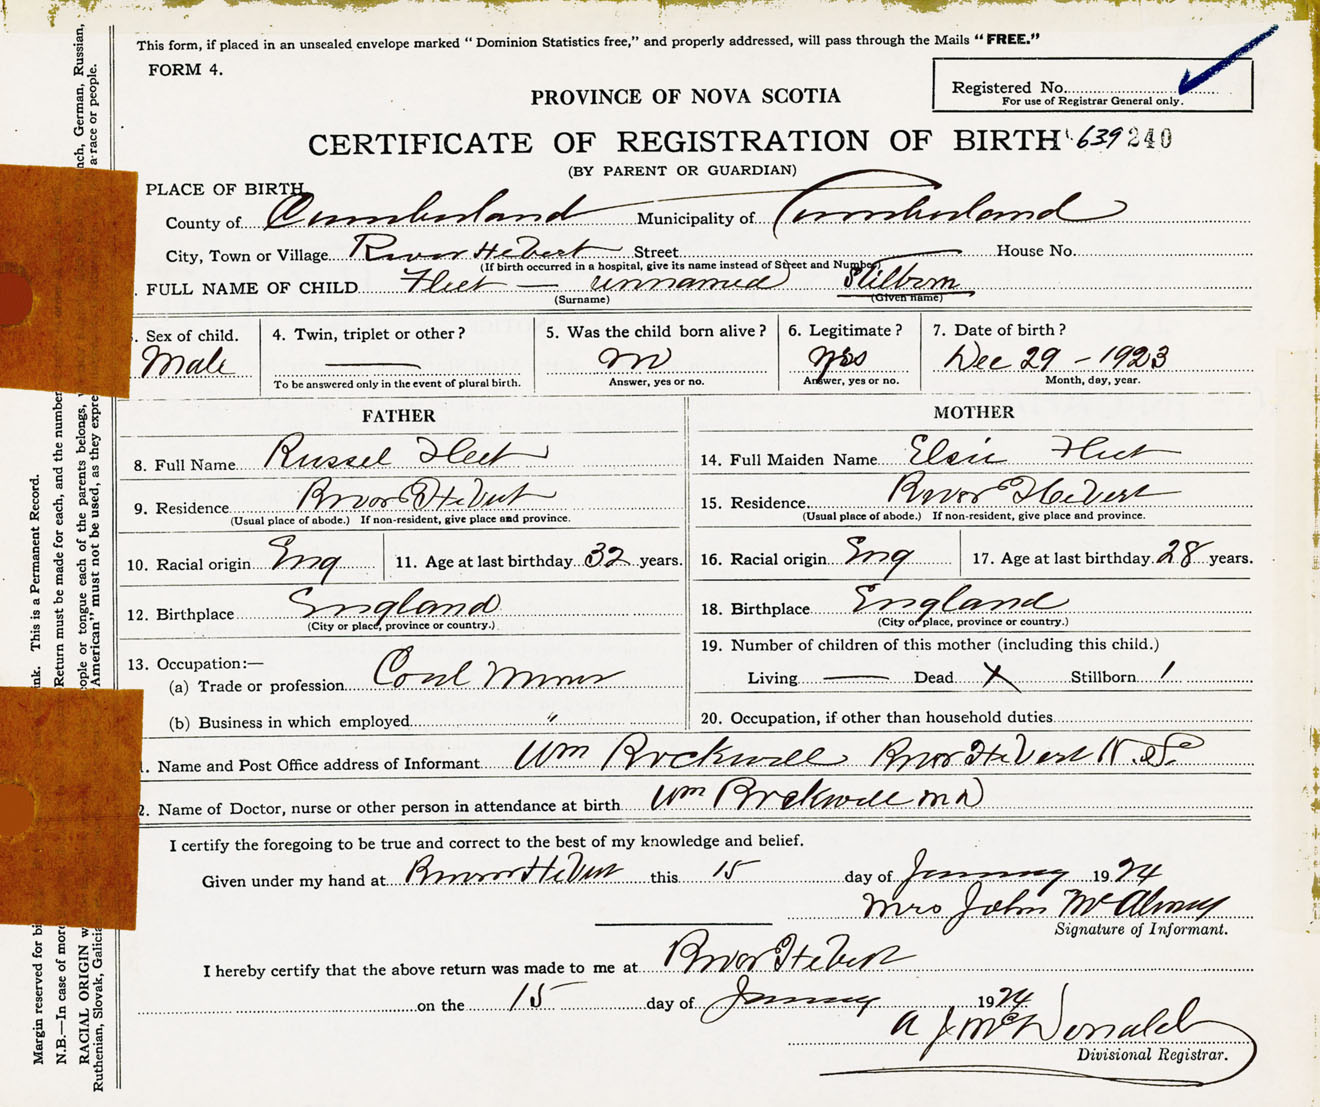 This form, if placed in an unsealed envelope marked “ Dominion Statistics free,” and properly addressed, will pass through the Mails “ FREE.”
FORM 4.
Registered No.
For use of Registrar General only.
PROVINCE OF NOVA SCOTIA
CERTIFICATE OF REGISTRATION OF BIRTH 639 240
(BY PARENT OR GUARDIAN)
PLACE OF BIRTH
County of Cumberland Municipality of Cumberland
City, Town or Village River Hebert Street House No.
(If birth occurred in a hospital, give its name instead of Street and Number)
FULL NAME OF CHILD Fleet — unnamed Stilborn
(Surname) (Given name)
Sex of child. 4. Twin, triplet or other? 5. Was the child born alive? 6. Legitimate? 7. Date of birth?
Male — no yes Dec 29 - 1923
To be answered only in the event of plural birth. Answer, yes or no. Answer, yes or no. Month, day, year.
FATHER MOTHER
8. Full Name Russel Fleet 14. Full Maiden Name Elsie Fleet
9. Residence River Hebert 15. Residence River Hebert
(Usual place of abode.) If non-resident, give place and province. (Usual place of abode.) If non-resident, give place and province.
10. Racial origin Eng 11. Age at last birthday 32 years. 16. Racial origin Eng 17. Age at last birthday 28 years.
12. Birthplace England 18. Birthplace England
(City or place, province or country.) (City or place, province or country.)
13. Occupation:— 19. Number of children of this mother (including this child.)
(a) Trade or profession Coal Miner Living — Dead X Stillborn 1
(b) Business in which employed " 20. Occupation, if other than household duties
Name and Post Office address of Informant Wm Rockwell River Hebert N.S.
2. Name of Doctor, nurse or other person in attendance at birth Wm Rockwell MD
I certify the foregoing to be true and correct to the best of my knowledge and belief.
Given under my hand at River Hebert this 15 day of January 1924
Mrs John
Signature of Informant.
I hereby certify that the above return was made to me at River Hebert
on the 15 day of January 1924
A J McDonald
Divisional Registrar.
Margin reserved for bi ink. This is a Permanent Record.
N.B.—In case of more Return must be made for each, and the number
RACIAL ORIGIN w people or tongue each of the parents belongs, nch, German, Russian,
Ruthenian, Slovak, Galicia American” must not be used, as they expre a race or people.